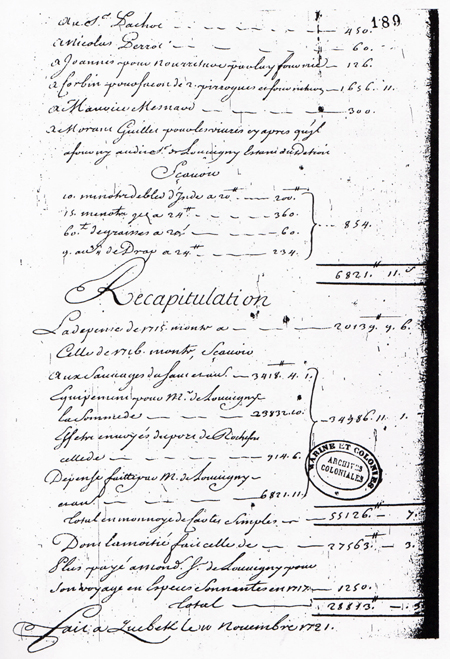 189
Au Sr. Pachot - - - 450.
A Nicolas Perrot - - - 60.
a Joannis pour nourriture par luy fournie - 126.
a Corbin pour facon de 2. pirogues et fourniture - 1656. 11.
a Maurice Mesnard - - - 300.
a Morans Guillet pour les vivres cy apres qu'yl
a fourny audit Sr. de Louvigny Estant du Detroit
Scavoir
10. minots de bled d'Inde a 20# - 200#
15. minots a 24# - - - 360.
60.# de graisses a 20s - - - 60.
9. de Drap a 26# - - 234.
854.
6821.# 11.s
Recapitulation
La depense de 1715. monte a - - - 20139. 9. 6.
Celle de 1716. monte, Scavoir
Aux Sauvages du haut - - 3418. 4. 1.
Equipement pour Mr. de Louvigny
la Somme de - - - 23832. 10.
Effets envoyés du port de Rochefort
celle de - - - 914. 6.
Depense faitte par M. de Louvigny
- - - 6821. 11.
34986. 11. 1.
MARINE ET COLONIES
ARCHIVES COLONIALES
total en monnoye de Cartes Simples - 55126.# - 7.
Dont la moitié fait celle de - - 27563.# - 3.
Plus payé a mond. Sr. de Louvigny pour
Son voyage en Especes Sonnantes en 1717 - 1250.
total - - - 28813.#
Fait a Quebek le 11 Novembre 1721.